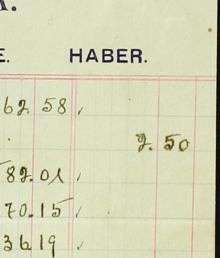 E. HABER.
62.58
2.50
82.01
70.15
3619